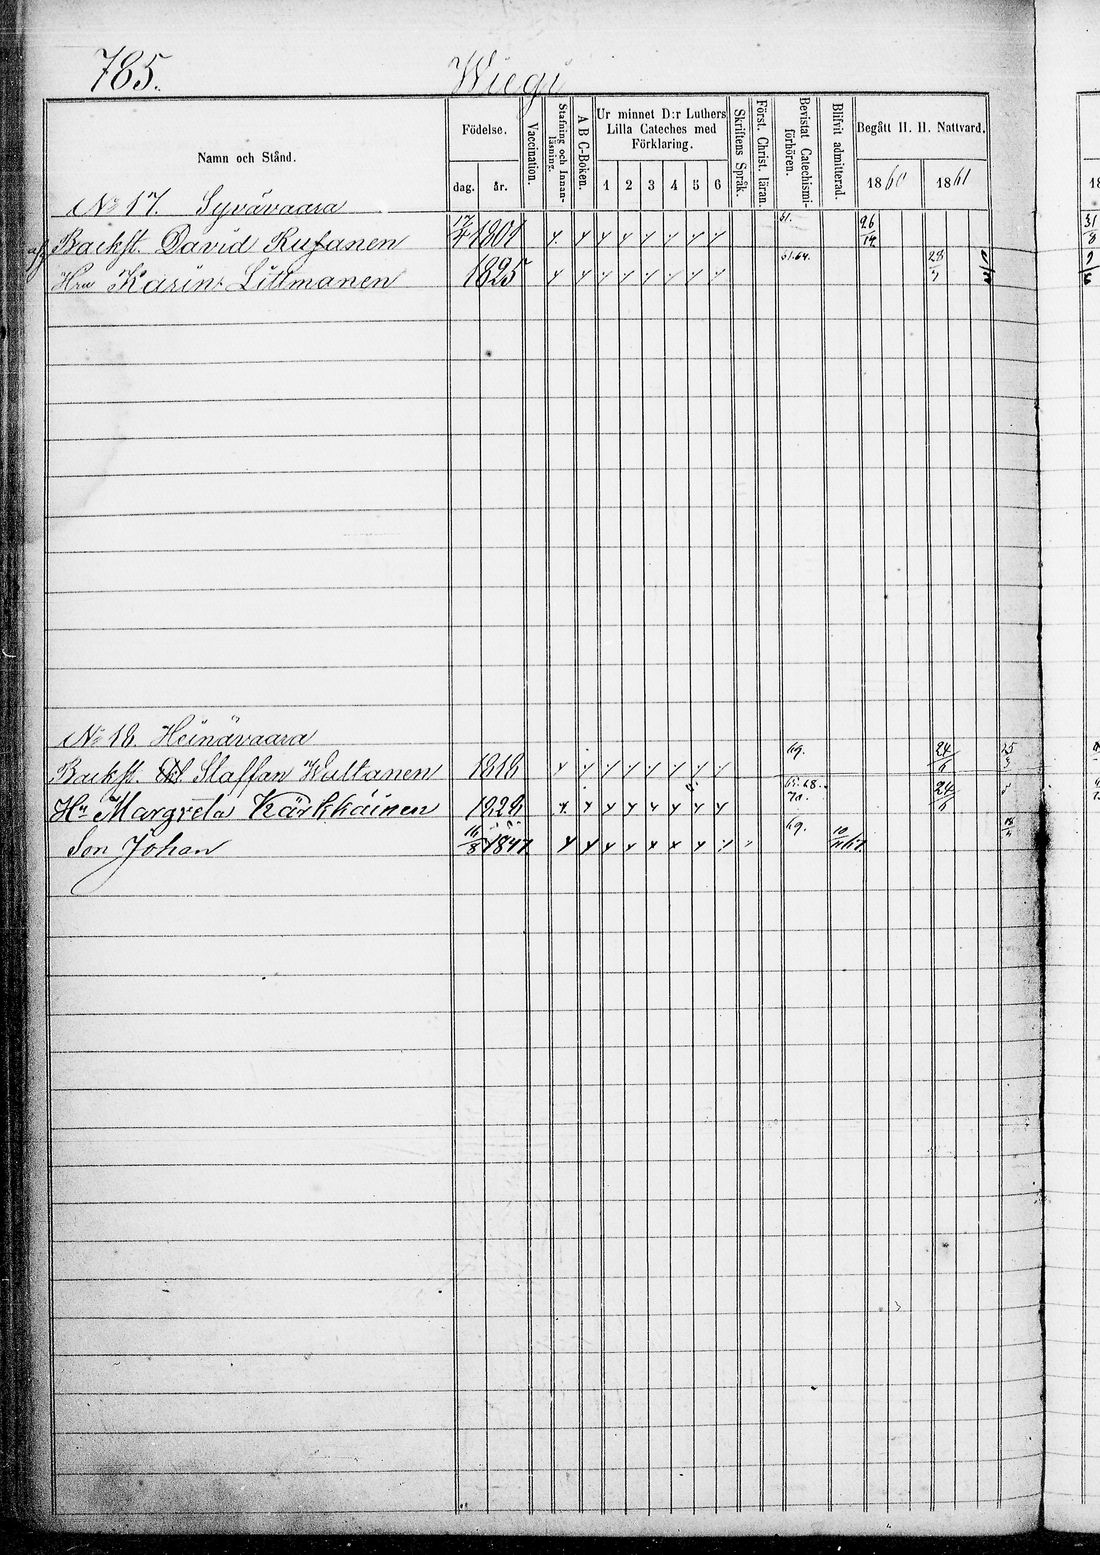 785.
Wiegi
Namn och Stånd.
Födelse.
dag. år.
Vaccination.
Stafning och Innanläsning.
A B C-Boken.
Ur minnet D:r Luthers Lilla Cateches med Förklaring.
1 2 3 4 5 6
Skriftens Språk.
Först. Christ. läran.
Bevistat Catechismiförhören.
Blifvit admitterad.
Begått H. H. Nattvard.
1860 1861
No 17. Syvävaara
Backst. David Rusanen 17/4 1801 61. 26/12
Hru Karin Litmanen 1825 61.64. 28/3
No 18. Heinävaara
Backst. Staffan Wultanen 1818 69. 24/6
Hu Margreta Kärkkäinen 1828 65.68. 70. 24/6
Son Johan 16/8 1847 69.